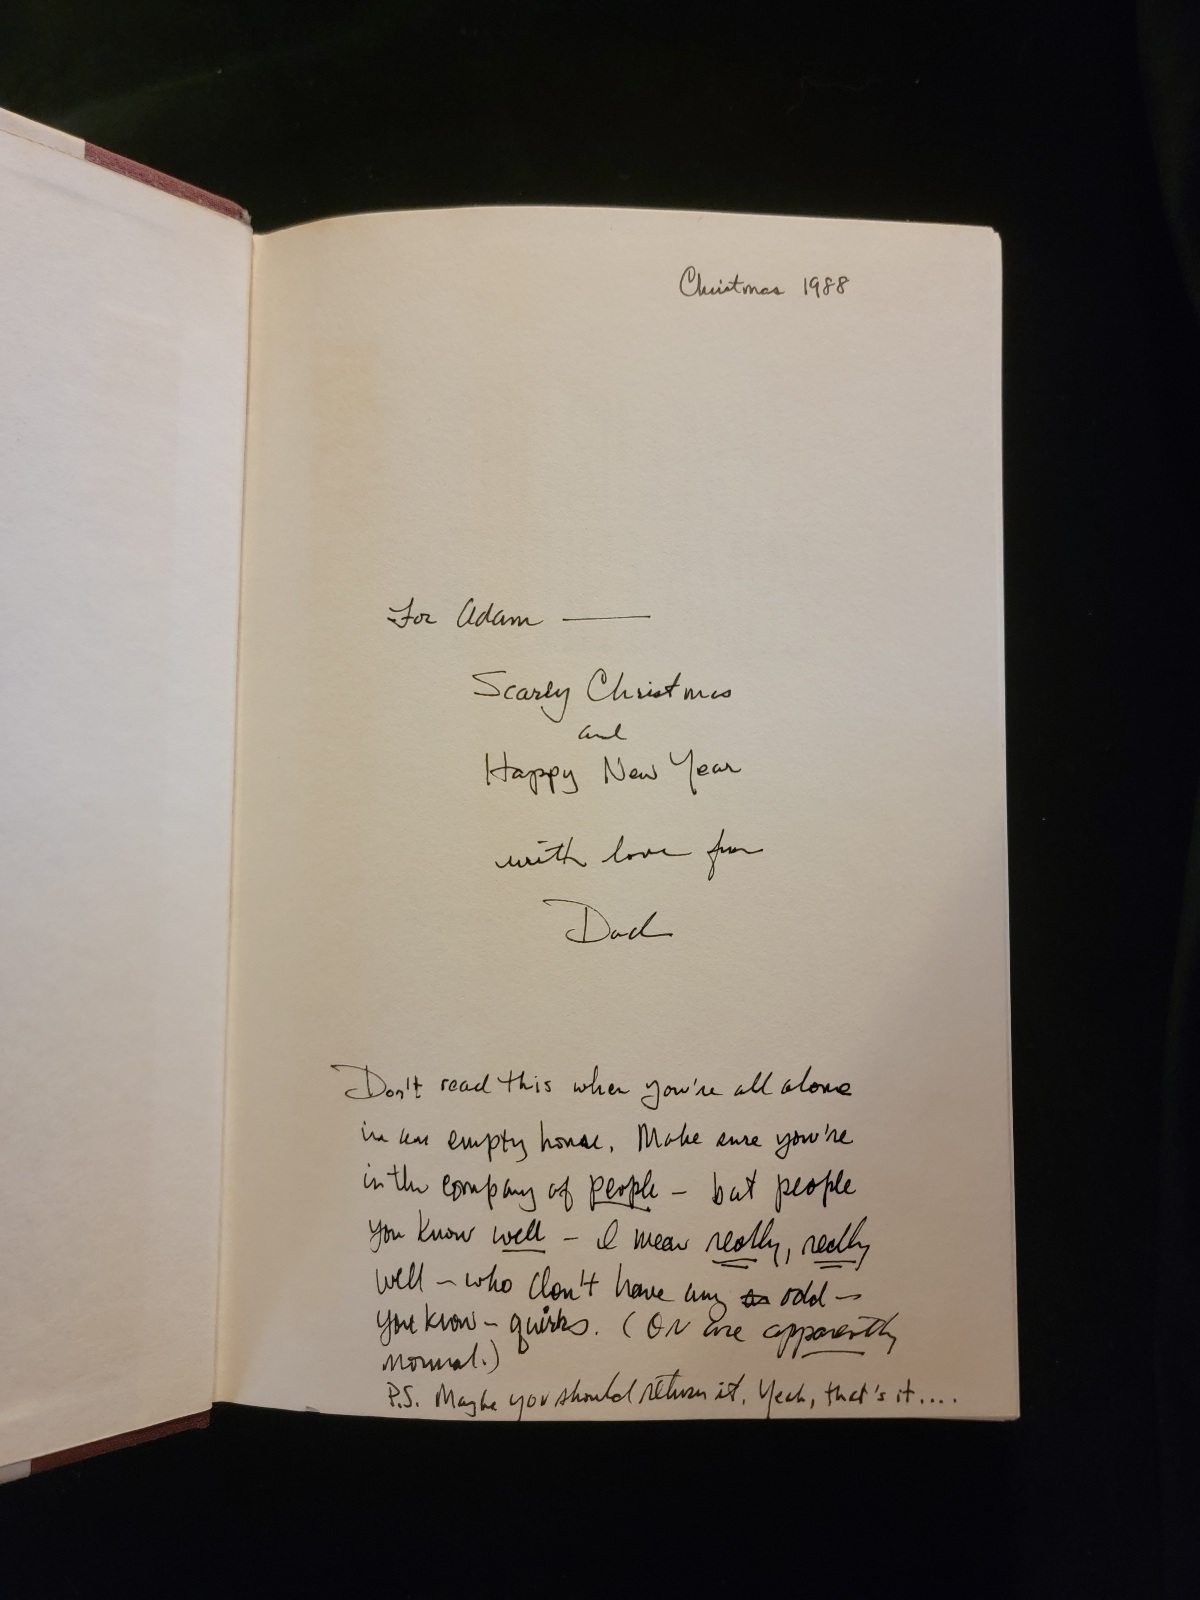 Christmas 1988
For Adam —
Scarey Christmas
and
Happy New Year
with love from
Dad
Don't read this when you're all alone
in an empty house. Make sure you're
in the company of people – but people
you know well – I mean really, really
well – who don't have any odd –
you know – quirks. (OR are apparently
normal.)
P.S. Maybe you should return it. Yeah, that's it....